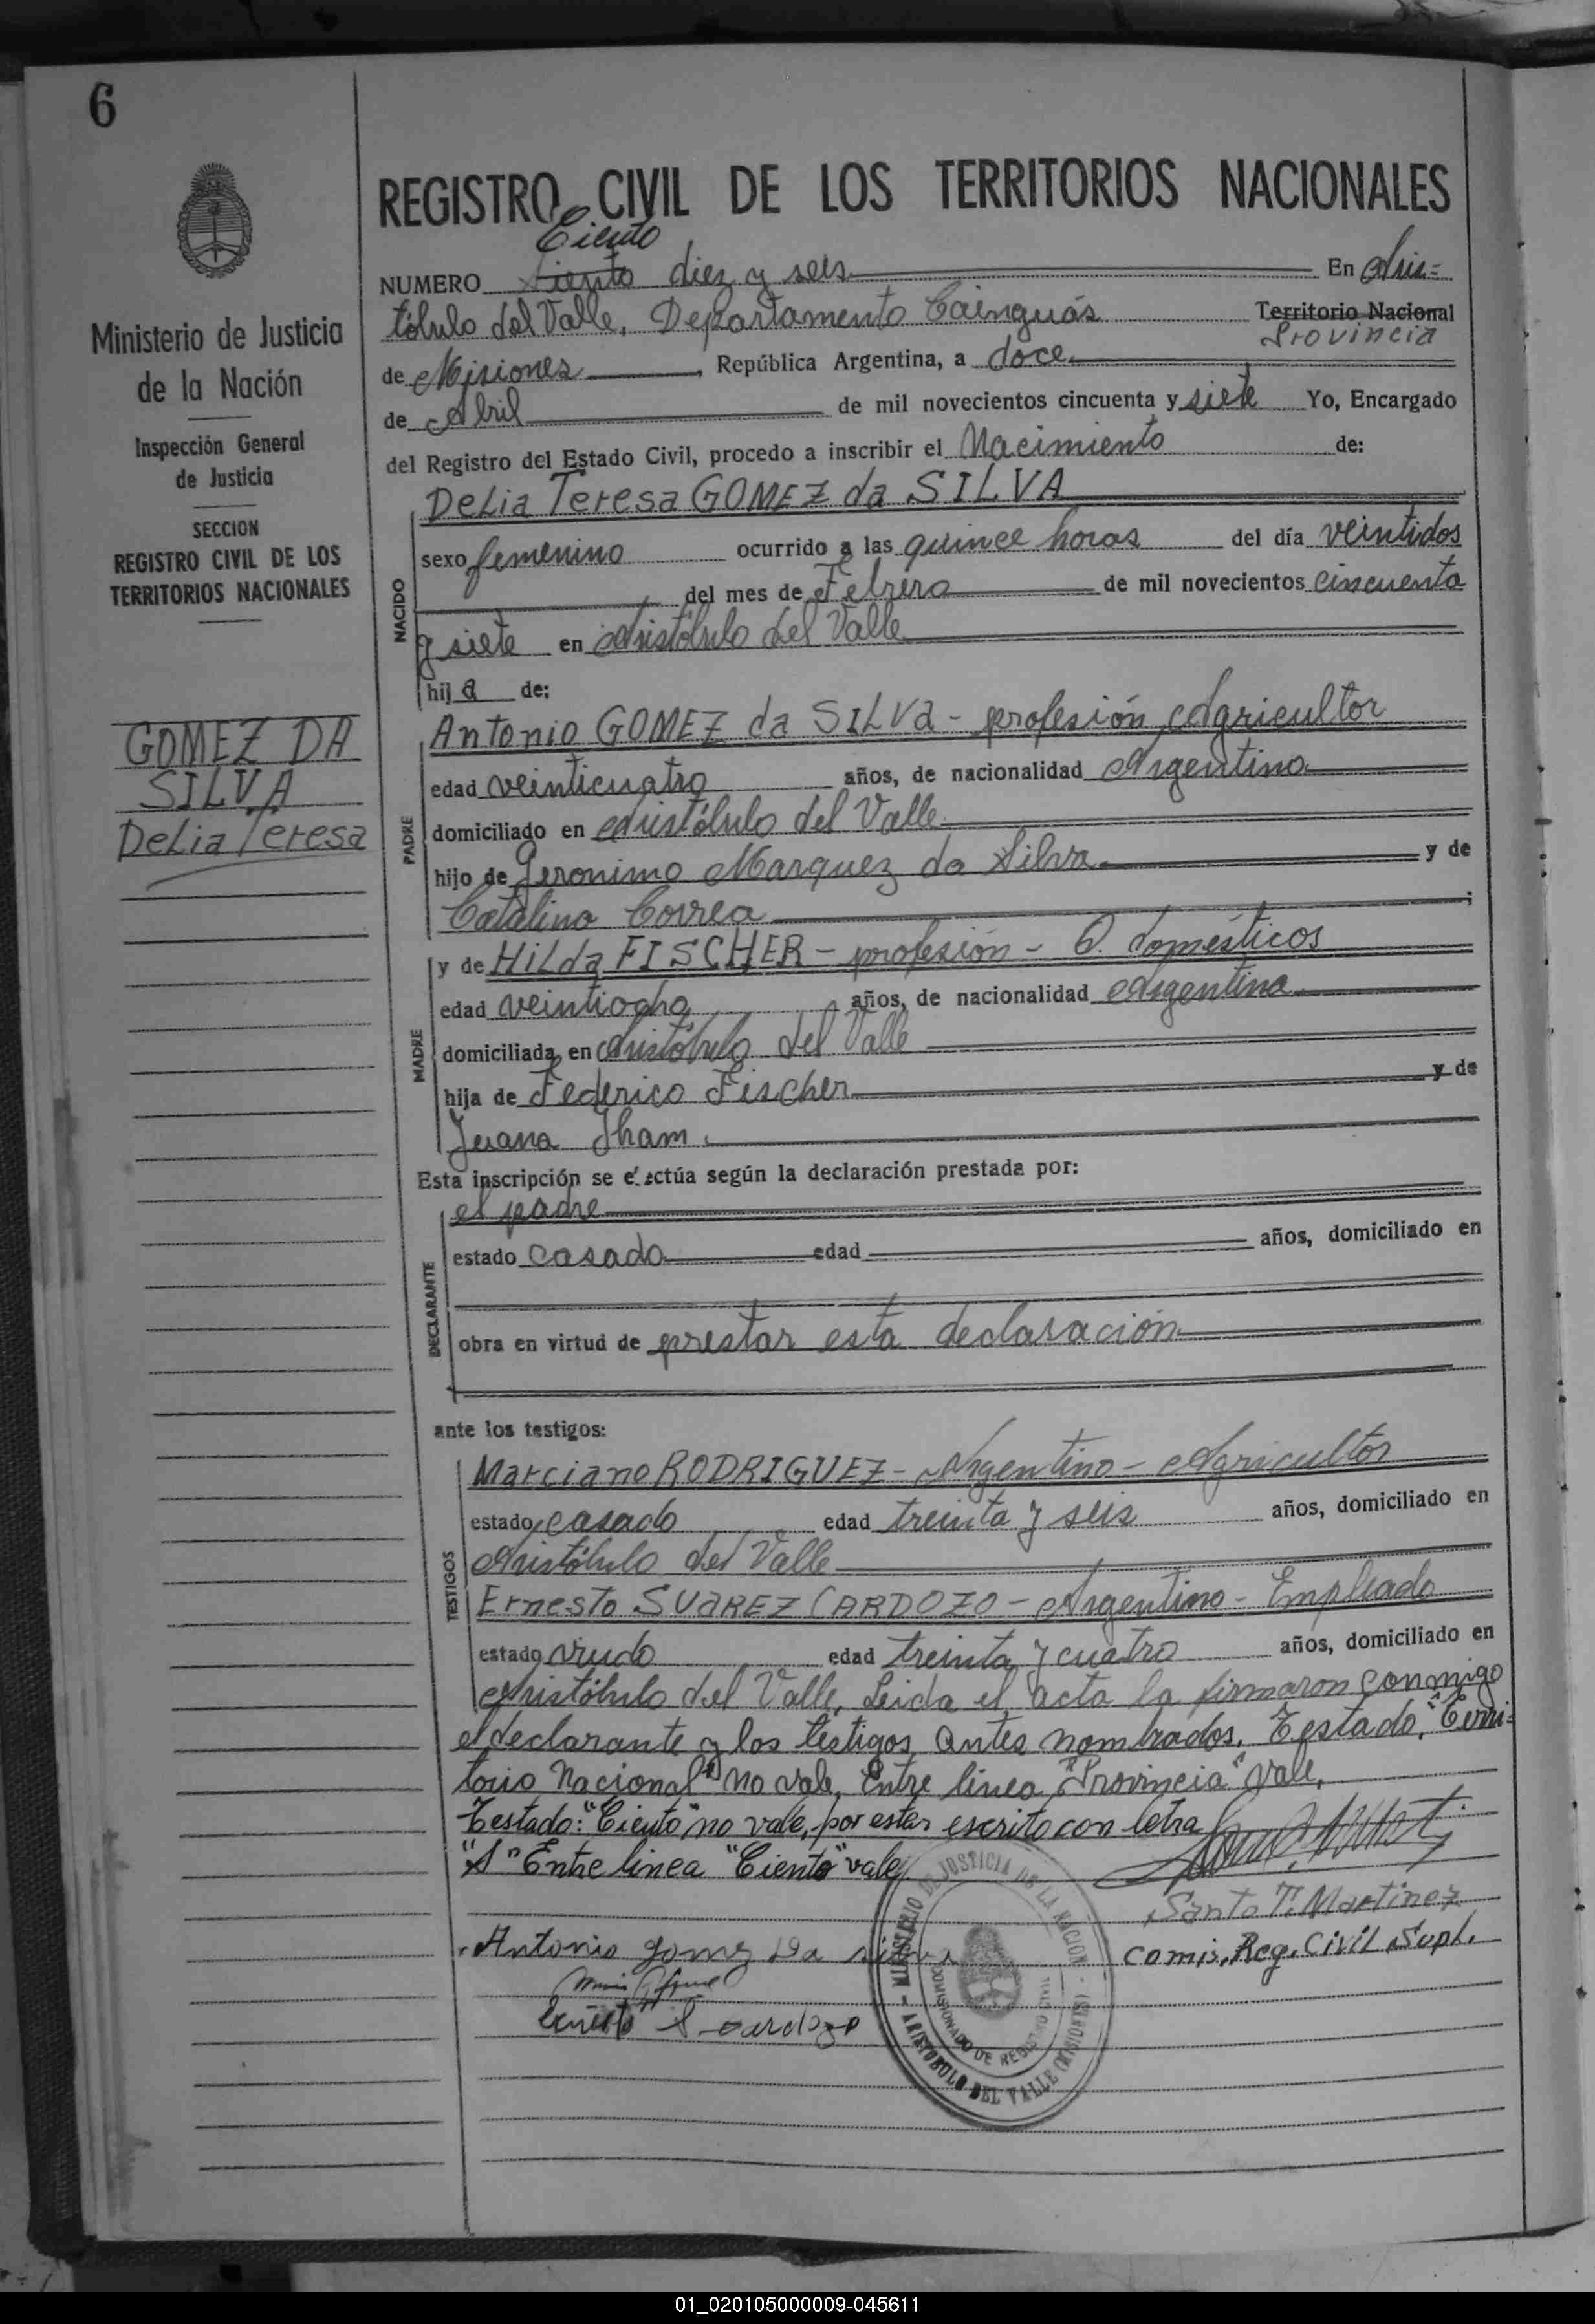 6
REGISTRO CIVIL DE LOS TERRITORIOS NACIONALES
Ciento
NUMERO Siento diez y seis En Aris=
tóbulo del Valle, Departamento Cainguás Territorio Nacional
Provincia
de Misiones, República Argentina, a doce
de Abril de mil novecientos cincuenta y siete Yo, Encargado
del Registro del Estado Civil, procedo a inscribir el Nacimiento de:
Ministerio de Justicia
de la Nación
Inspección General
de Justicia
SECCION
REGISTRO CIVIL DE LOS
TERRITORIOS NACIONALES
GOMEZ DA
SILVA
Delia Teresa
NACIDO
Delia Teresa GOMEZ da SILVA
sexo femenino ocurrido a las quince horas del día veintidos
del mes de Febrero de mil novecientos cincuenta
y siete en Aristóbulo del Valle
hija de:
PADRE
Antonio GOMEZ da SILVA - profesión Agricultor
edad veinticuatro años, de nacionalidad Argentino
domiciliado en Aristóbulo del Valle
hijo de Geronimo Marquez da Silva y de
Catalina Correa
MADRE
y de Hilda FISCHER - profesión - Q. domésticos
edad veintiocho años, de nacionalidad Argentina
domiciliada en Aristóbulo del Valle
hija de Federico Fischer y de
Juana
Esta inscripción se efectúa según la declaración prestada por:
DECLARANTE
el padre
estado casado edad años, domiciliado en
obra en virtud de prestar esta declaración
ante los testigos:
TESTIGOS
Marciano RODRIGUEZ - Argentino - Agricultor
estado casado edad treinta y seis años, domiciliado en
Aristóbulo del Valle
Ernesto SUAREZ CARDOZO - Argentino - Empleado
estado viudo edad treinta y cuatro años, domiciliado en
Aristóbulo del Valle, Leida el acta la firmaron conmigo
el declarante y los testigos antes nombrados. Testado: "Terri=
torio Nacional" no vale, Entre linea "Provincia" vale,
Testado: "Ciento" no vale, por estar escrito con letra
"S" Entre linea "Ciento" vale
Santo T. Martinez
Comis. Reg. Civil Supl.
Antonio gomez Da silva
Ernesto S cardozo
MINISTERIO DE JUSTICIA DE LA NACION
COMISIONADO DE REGISTRO CIVIL
ARISTOBULO DEL VALLE (MISIONES)
01_020105000009-045611